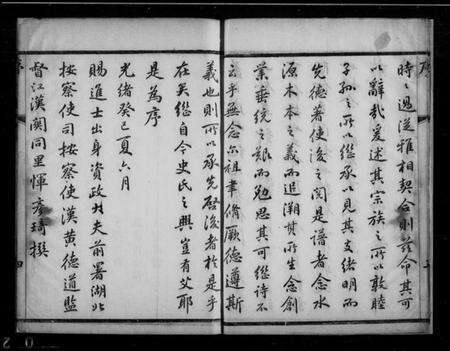 序
時之過從雅相契合則茲命其可
以辭哉爰述其宗族之所以敦睦
子孫之所以繼承以見其支緒明而
先德著使後之閱是譜者念水
源木本之義而追溯其所生念創
業垂統之艱而勉思其可繼詩不
云乎無念爾祖聿修厥德遵斯
義也則所以承先啓後者於是乎
在矣繼自今史氏之興豈有艾耶
是為序
光緒癸巳夏六月
賜進士出身資政大夫前署湖北
按察使司按察使漢黃德道監
督江漢關同里惲彥琦撰
序
四
0 2